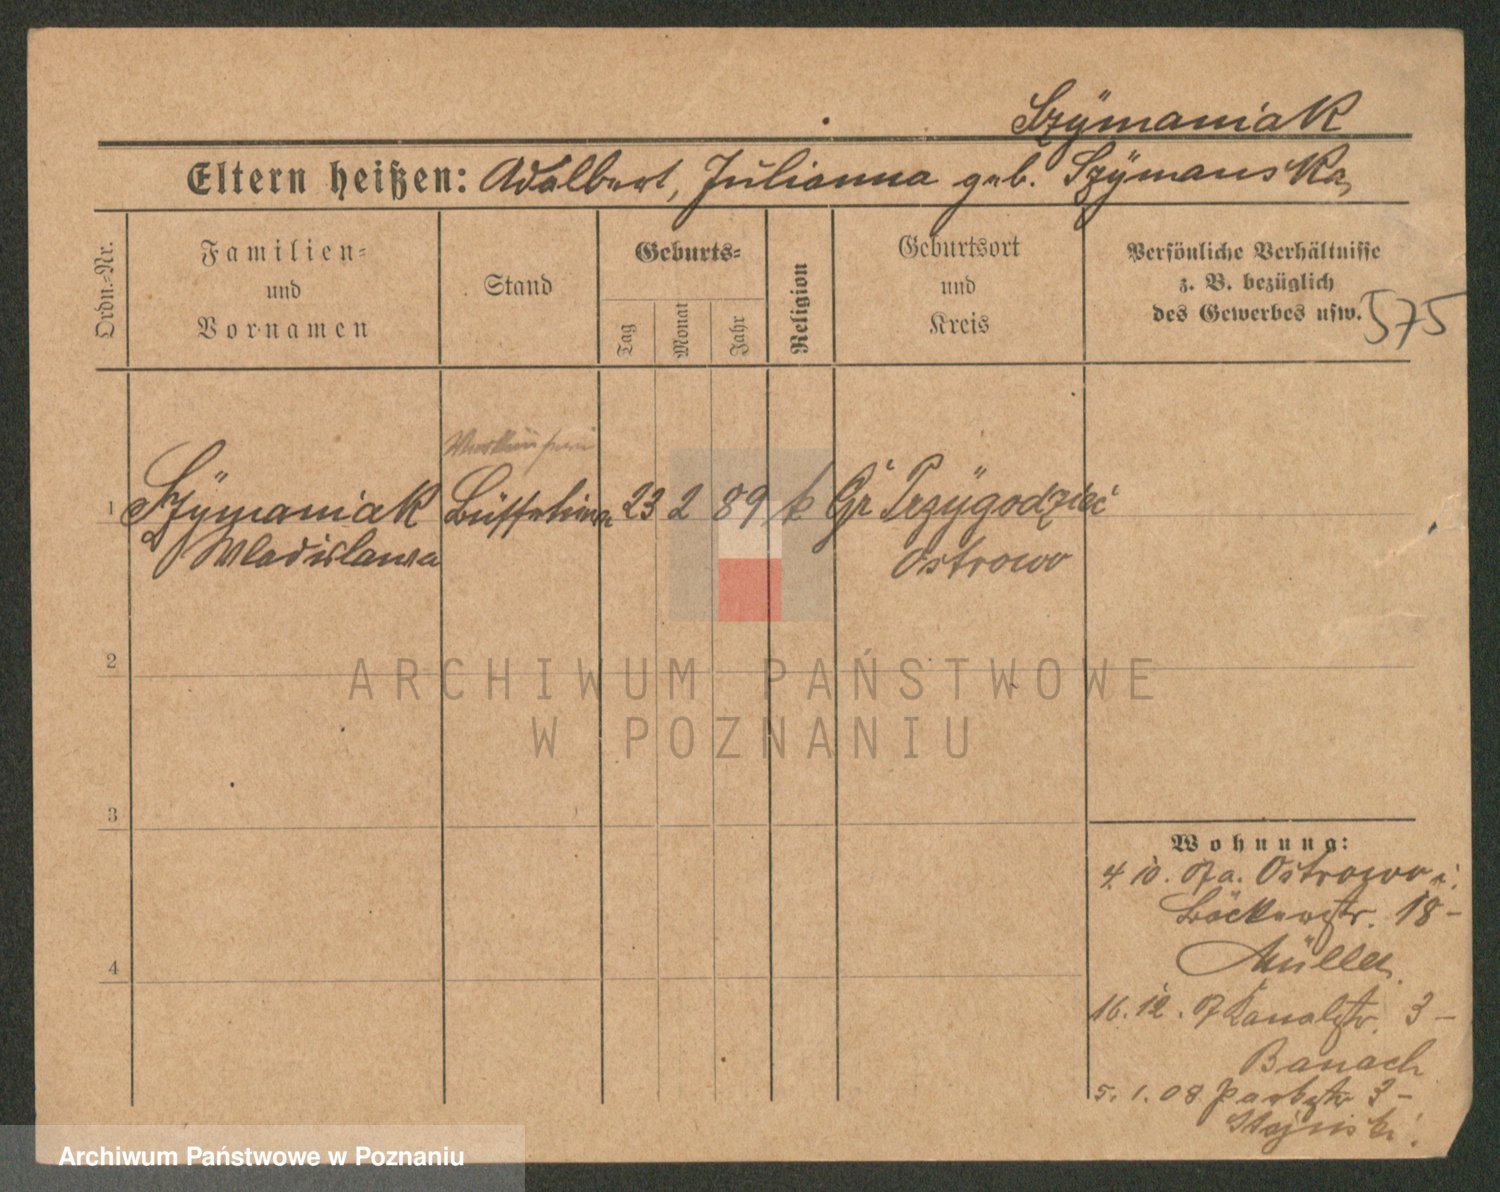 Szÿmaniak
Eltern heißen: Adalbert, Julianna geb. Szÿmanska
Ordn.-Nr.
Familien-
und
Vornamen
Stand
Geburts-
Tag
Monat
Jahr
Religion
Geburtsort
und
Kreis
Persönliche Verhältnisse
z. B. bezüglich
des Gewerbes usw.
575
1 Szÿmaniak Büffetiera 23 2 89 k Gr Przÿgodzieć
Wladislawa Ostrowo
2
ARCHIWUM PAŃSTWOWE
W POZNANIU
3
Wohnung:
4. 10. 07 a. Ostrowo
Bäckerstr. 18 -
Müller
4
16. 12. 07 Kanalstr. 3 -
Banach
5. 1. 08 Parkstr 3 -
Archiwum Państwowe w Poznaniu